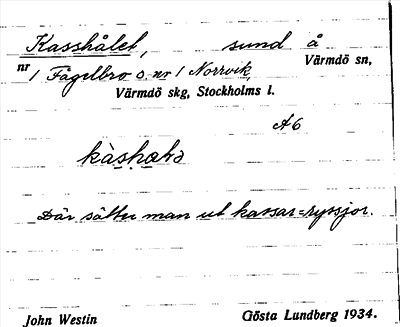 Kasshålet, sund å Värmdö sn,
nr 1 Fågelbro o nr 1 Norrvik,
Värmdö skg, Stockholms l.
A6
Där sätter man ut kassar=ryssjor.
John Westin Gösta Lundberg 1934.